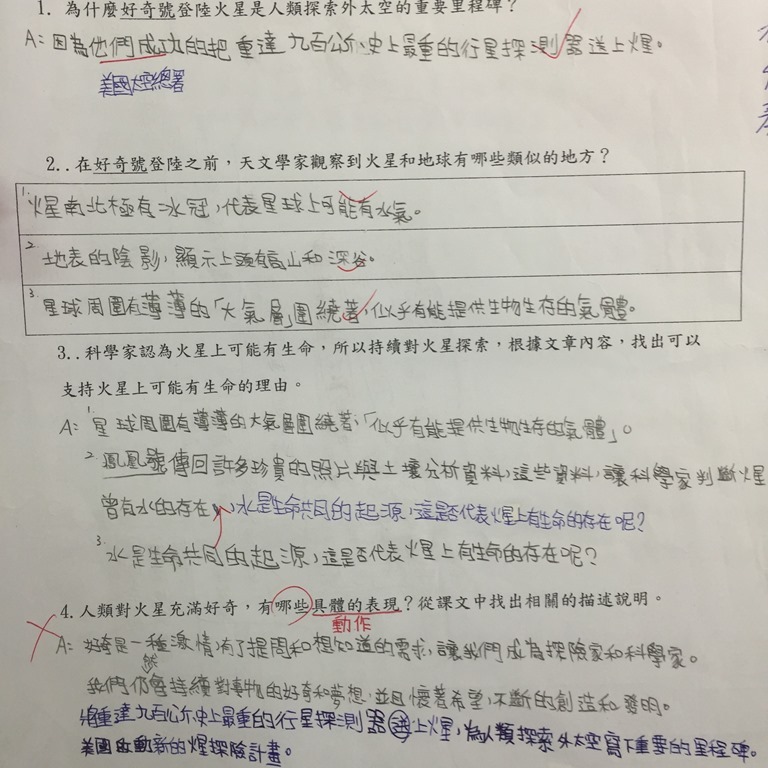 1. 為什麼好奇號登陸火星是人類探索外太空的重要里程碑？
A：因為他們成功的把重達九百公斤、史上最重的行星探測器送上火星。
美國太空總署
2..在好奇號登陸之前，天文學家觀察到火星和地球有哪些類似的地方？
1. 火星南北極有冰冠，代表星球上可能有水氣。
2. 地表的陰影，顯示上頭有高山和深谷。
3. 星球周圍有薄薄的「大氣層」圍繞著，似乎有能提供生物生存的氣體。
3..科學家認為火星上可能有生命，所以持續對火星探索，根據文章內容，找出可以
支持火星上可能有生命的理由。
A：1. 星球周圍有薄薄的大氣層圍繞著，「似乎有能提供生物生存的氣體」。
2. 鳳凰號傳回許多珍貴的照片與土壤分析資料，這些資料，讓科學家判斷火星
曾有水的存在，水是生命共同的起源，這是否代表火星上有生命的存在呢？
3. 水是生命共同的起源，這是否代表火星上有生命的存在呢？
4.人類對火星充滿好奇，有哪些具體的表現？從課文中找出相關的描述說明。
動作
A：好奇是一種激情，有了提問和想知道的需求，讓我們成為探險家和科學家。
然
我們仍每持續對事物的好奇和夢想，並且懷著希望，不斷的創造和發明。
將重達九百公斤、史上最重的行星探測器送上火星，為人類探索外太空寫下重要的里程碑。
美國啟動新的火星探險計畫。